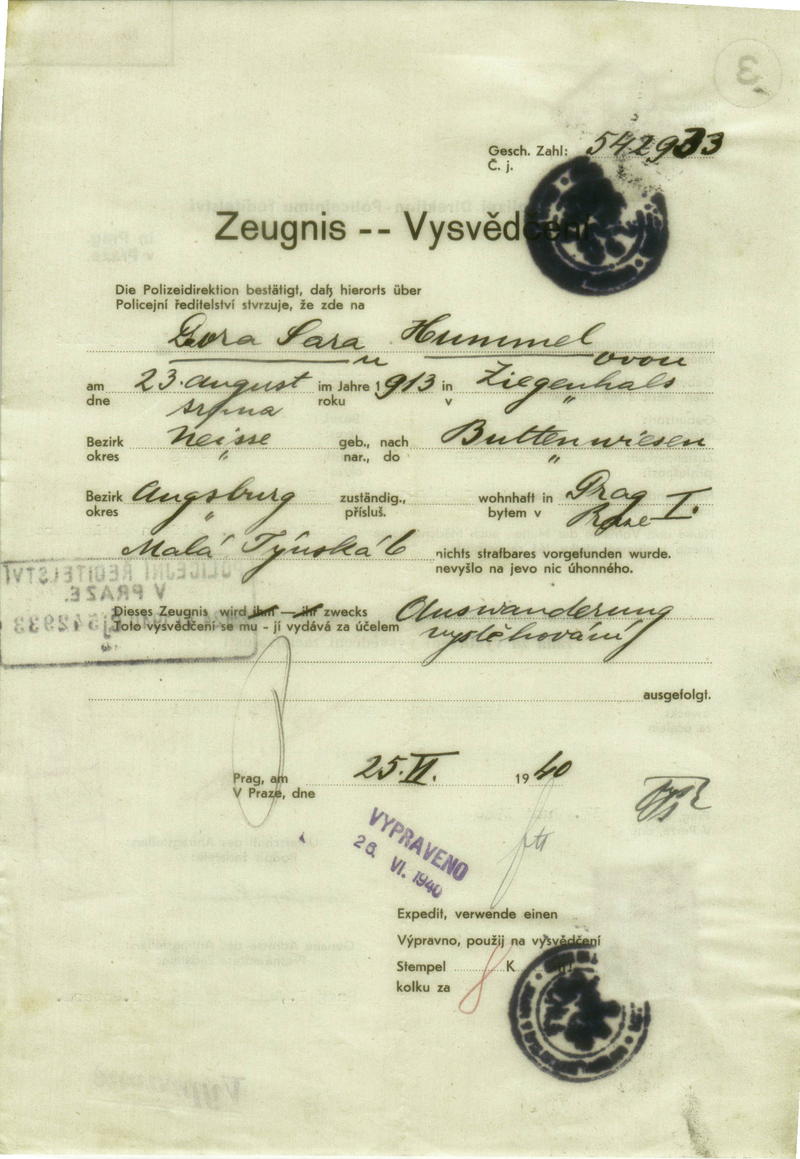 Gesch. Zahl: 542933
Č. j.
Zeugnis -- Vysvědčení
Die Polizeidirektion bestätigt, daß hierorts über
Policejní ředitelství stvrzuje, že zde na
Dora Sara Hummel
u ovou
am 23. august im Jahre 1913 in Ziegenhals
dne srpna roku v "
Bezirk Neisse geb., nach Buttenwiesen
okres " nar., do "
Bezirk Augsburg zuständig., wohnhaft in Prag I.
okres " přísluš. bytem v Praze
Malá Týnská 6 nichts strafbares vorgefunden wurde.
nevyšlo na jevo nic úhonného.
POLICEJNÍ ŘEDITELSTVÍ
V PRAZE.
542933
Dieses Zeugnis wird ihm — ihr zwecks Auswanderung
Toto vysvědčení se mu - jí vydává za účelem vystěhování
ausgefolgt.
Prag, am 25. VI. 1940
V Praze, dne
VYPRAVENO
26. VI. 1940
Expedit, verwende einen
Výpravno, použij na vysvědčení
Stempel 8 K
kolku za
3